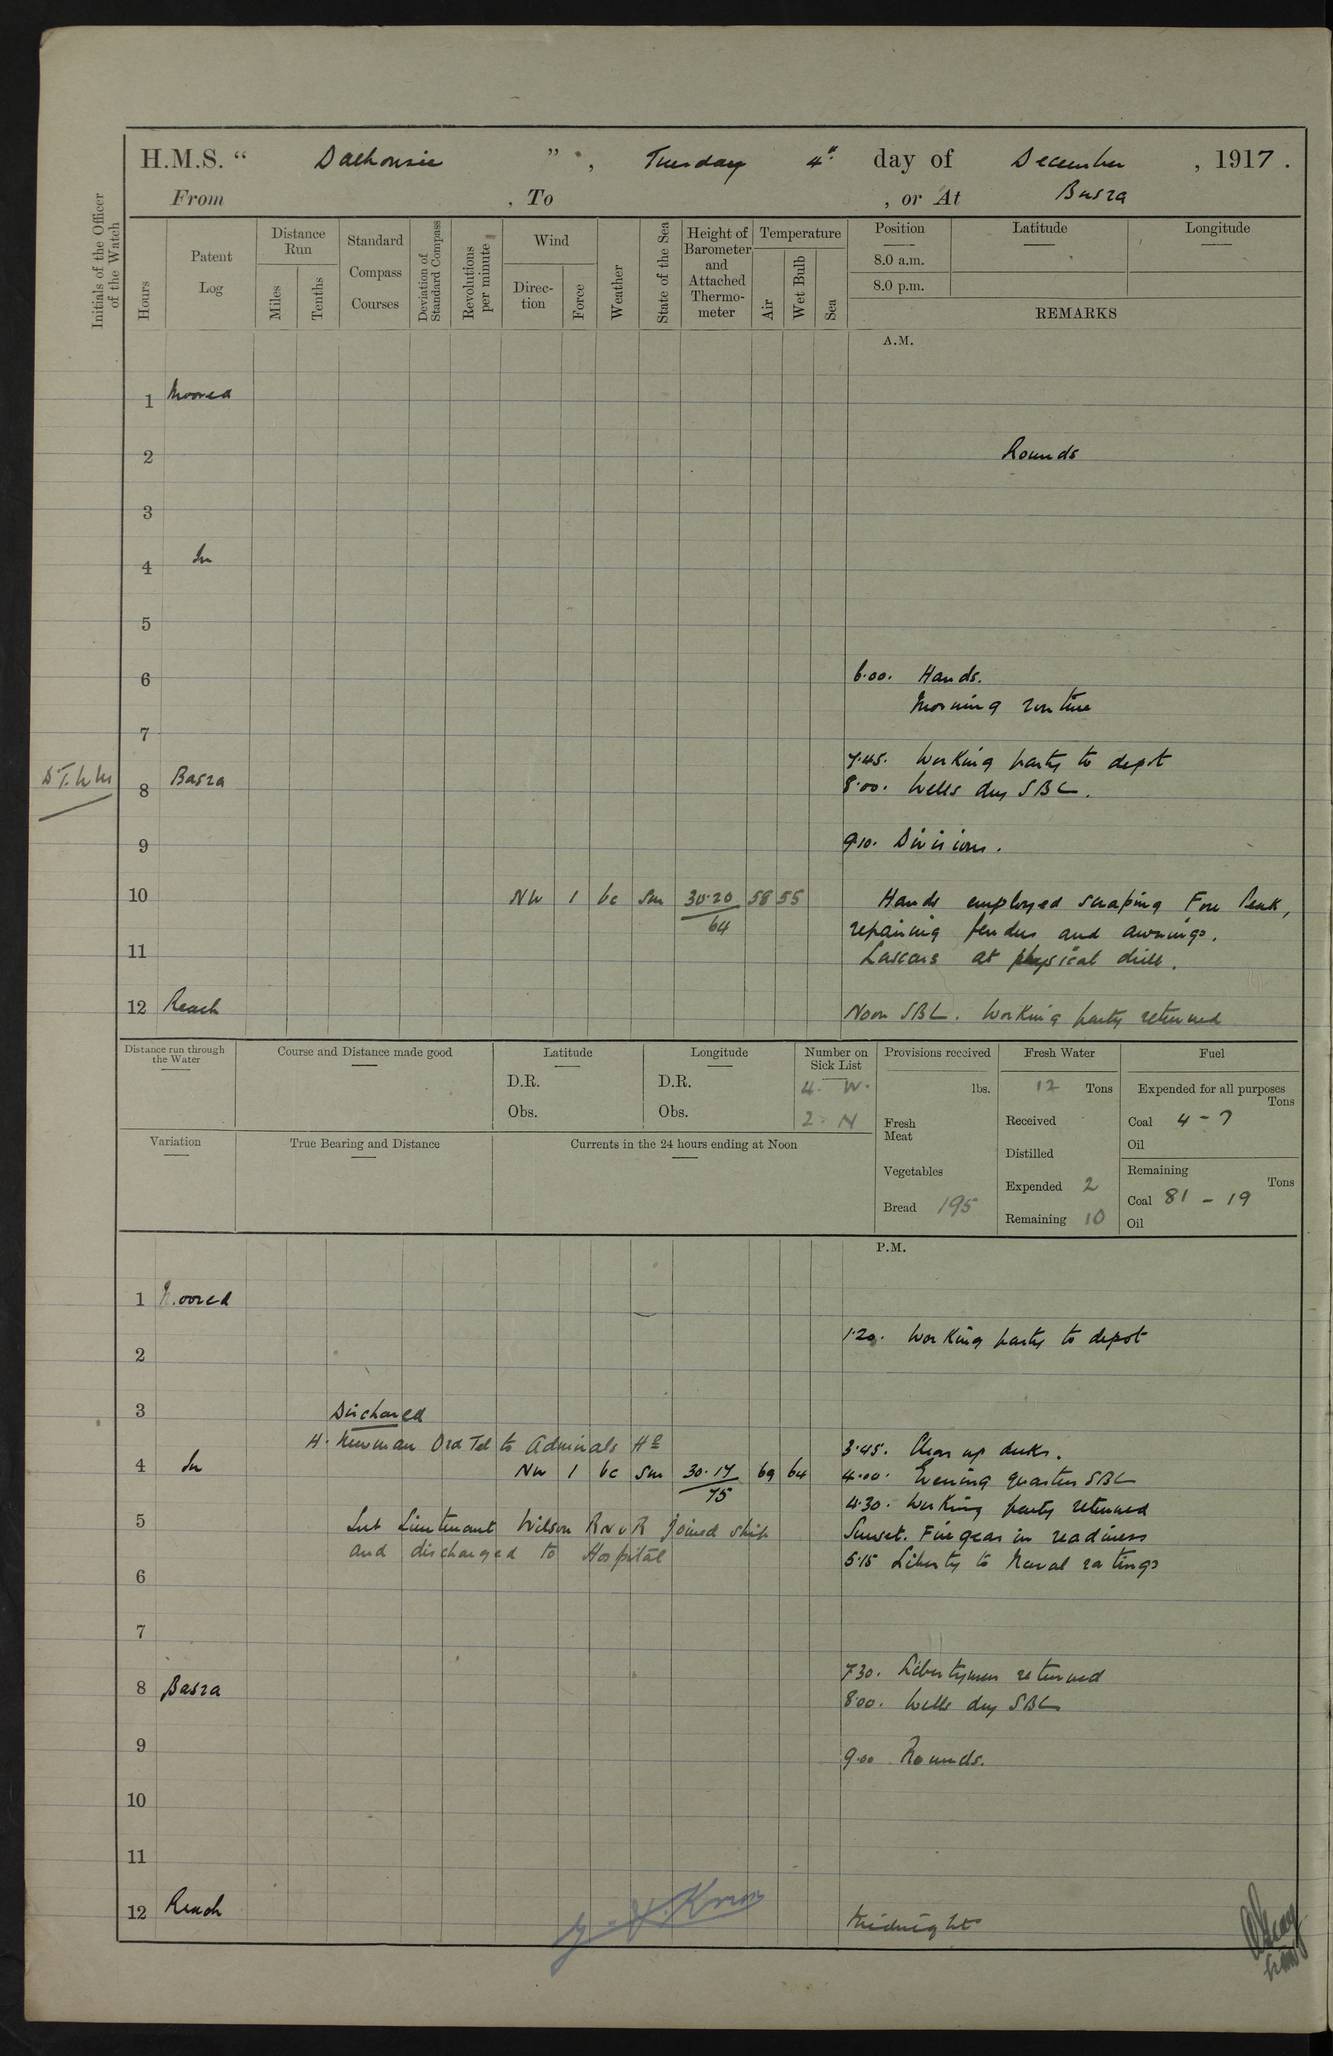 H.M.S. " Dalhousie ", Tuesday 4th day of December, 1917.
From , To , or At Basra
Initials of the Officer of the Watch
Hours
Patent Log
Distance Run
Miles
Tenths
Standard Compass Courses
Deviation of Standard Compass
Revolutions per minute
Wind
Direction
Force
Weather
State of the Sea
Height of Barometer and Attached Thermometer
Temperature
Air
Wet Bulb
Sea
Position
8.0 a.m.
8.0 p.m.
Latitude
Longitude
REMARKS
A.M.
1 Moored
2 Rounds
3
4 In
5
6 6.00. Hands.
Morning routine
7
7.45. Working party to depot
8 Basra 8.00. Wells dry SBC.
9 9.10. Divisions.
10 NW 1 bc sm 30.20 58 55 Hands employed scraping Fore Peak,
64 repairing fenders and awnings.
11 Lascars at physical drill.
12 Reach Noon SBC. Working party returned
Distance run through the Water
Course and Distance made good
Latitude
D.R.
Obs.
Longitude
D.R.
Obs.
Number on Sick List
4. W.
2. N
Provisions received
lbs.
Fresh Meat
Vegetables
Bread 195
Fresh Water
12 Tons
Received
Distilled
Expended 2
Remaining 10
Fuel
Expended for all purposes
Tons
Coal 4 - 7
Oil
Remaining
Tons
Coal 81 - 19
Oil
Variation
True Bearing and Distance
Currents in the 24 hours ending at Noon
P.M.
1 Moored
1.20. Working party to depot
2
3 Dischared
H. Newman Ord Tel to Admirals Hd 3.45. Clear up decks.
4 In NW 1 bc sm 30.17 69 64 4.00. Evening quarters SBC
75 4.30. Working party returned
5 Sub Lieutenant Wilson RNVR joined ship Sunset. Fire gear in readiness
and discharged to Hospital 5.15 Liberty to Naval ratings
6
7
7.30. Libertymen returned
8 Basra 8.00. Wells dry SBC
9 9.00 Rounds.
10
11
12 Reach Midnight